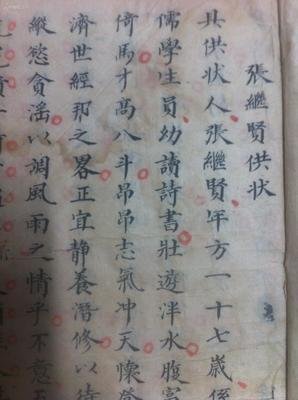 張繼賢供狀
具供狀人張繼賢年方一十七歲係
儒學生員幼讀詩書壯遊泮水腹富
倚馬才高八斗昂昂志氣冲天懷
濟世經邦之畧正宜静養潛修以待
縱慾貪滛以調風雨之情乎不意